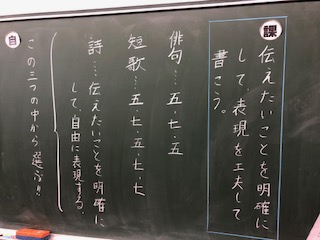 課
伝えたいことを明確に
して、表現を工夫して
書こう。
俳句…五・七・五
短歌…五・七・五・七・七
詩…伝えたいことを明確に
して、自由に表現する。
自
この三つの中から選ぶ!!